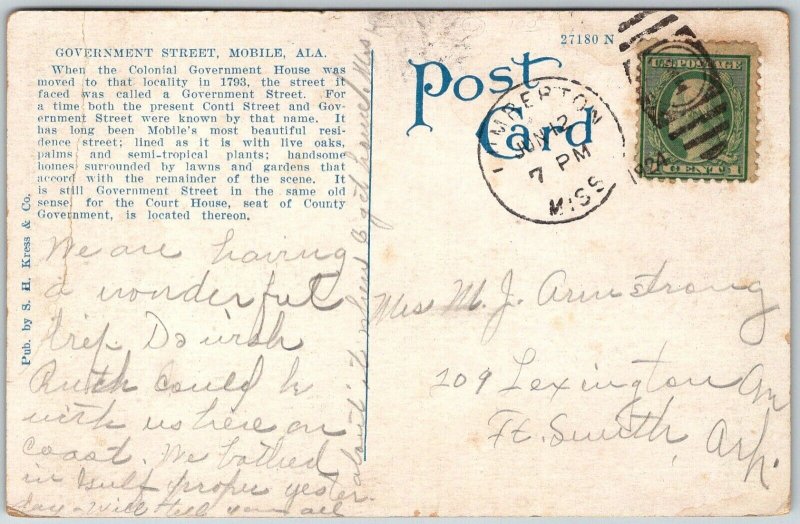 GOVERNMENT STREET, MOBILE, ALA.
When the Colonial Government House was
moved to that locality in 1793, the street it
faced was called a Government Street. For
a time both the present Conti Street and Gov-
ernment Street were known by that name. It
has long been Mobile's most beautiful resi-
dence street; lined as it is with live oaks,
palms and semi-tropical plants; handsome
homes surrounded by lawns and gardens that
accord with the remainder of the scene. It
is still Government Street in the same old
sense, for the Court House, seat of County
Government, is located thereon.
Pub. by S. H. Kress & Co.
We are having
a wonderful
trip. Do wish
Ruth could be
with us here on
coast. We bathed
in Gulf proper yester-
day - will tell you all
about it when I get home.
27180 N
Post
Card
LUMBERTON
JUN 12
7 PM
MISS
1924
U.S. POSTAGE
1 CENT 1
M. J. Armstrong
209 Lexington Av
Ft. Smith, Ark.